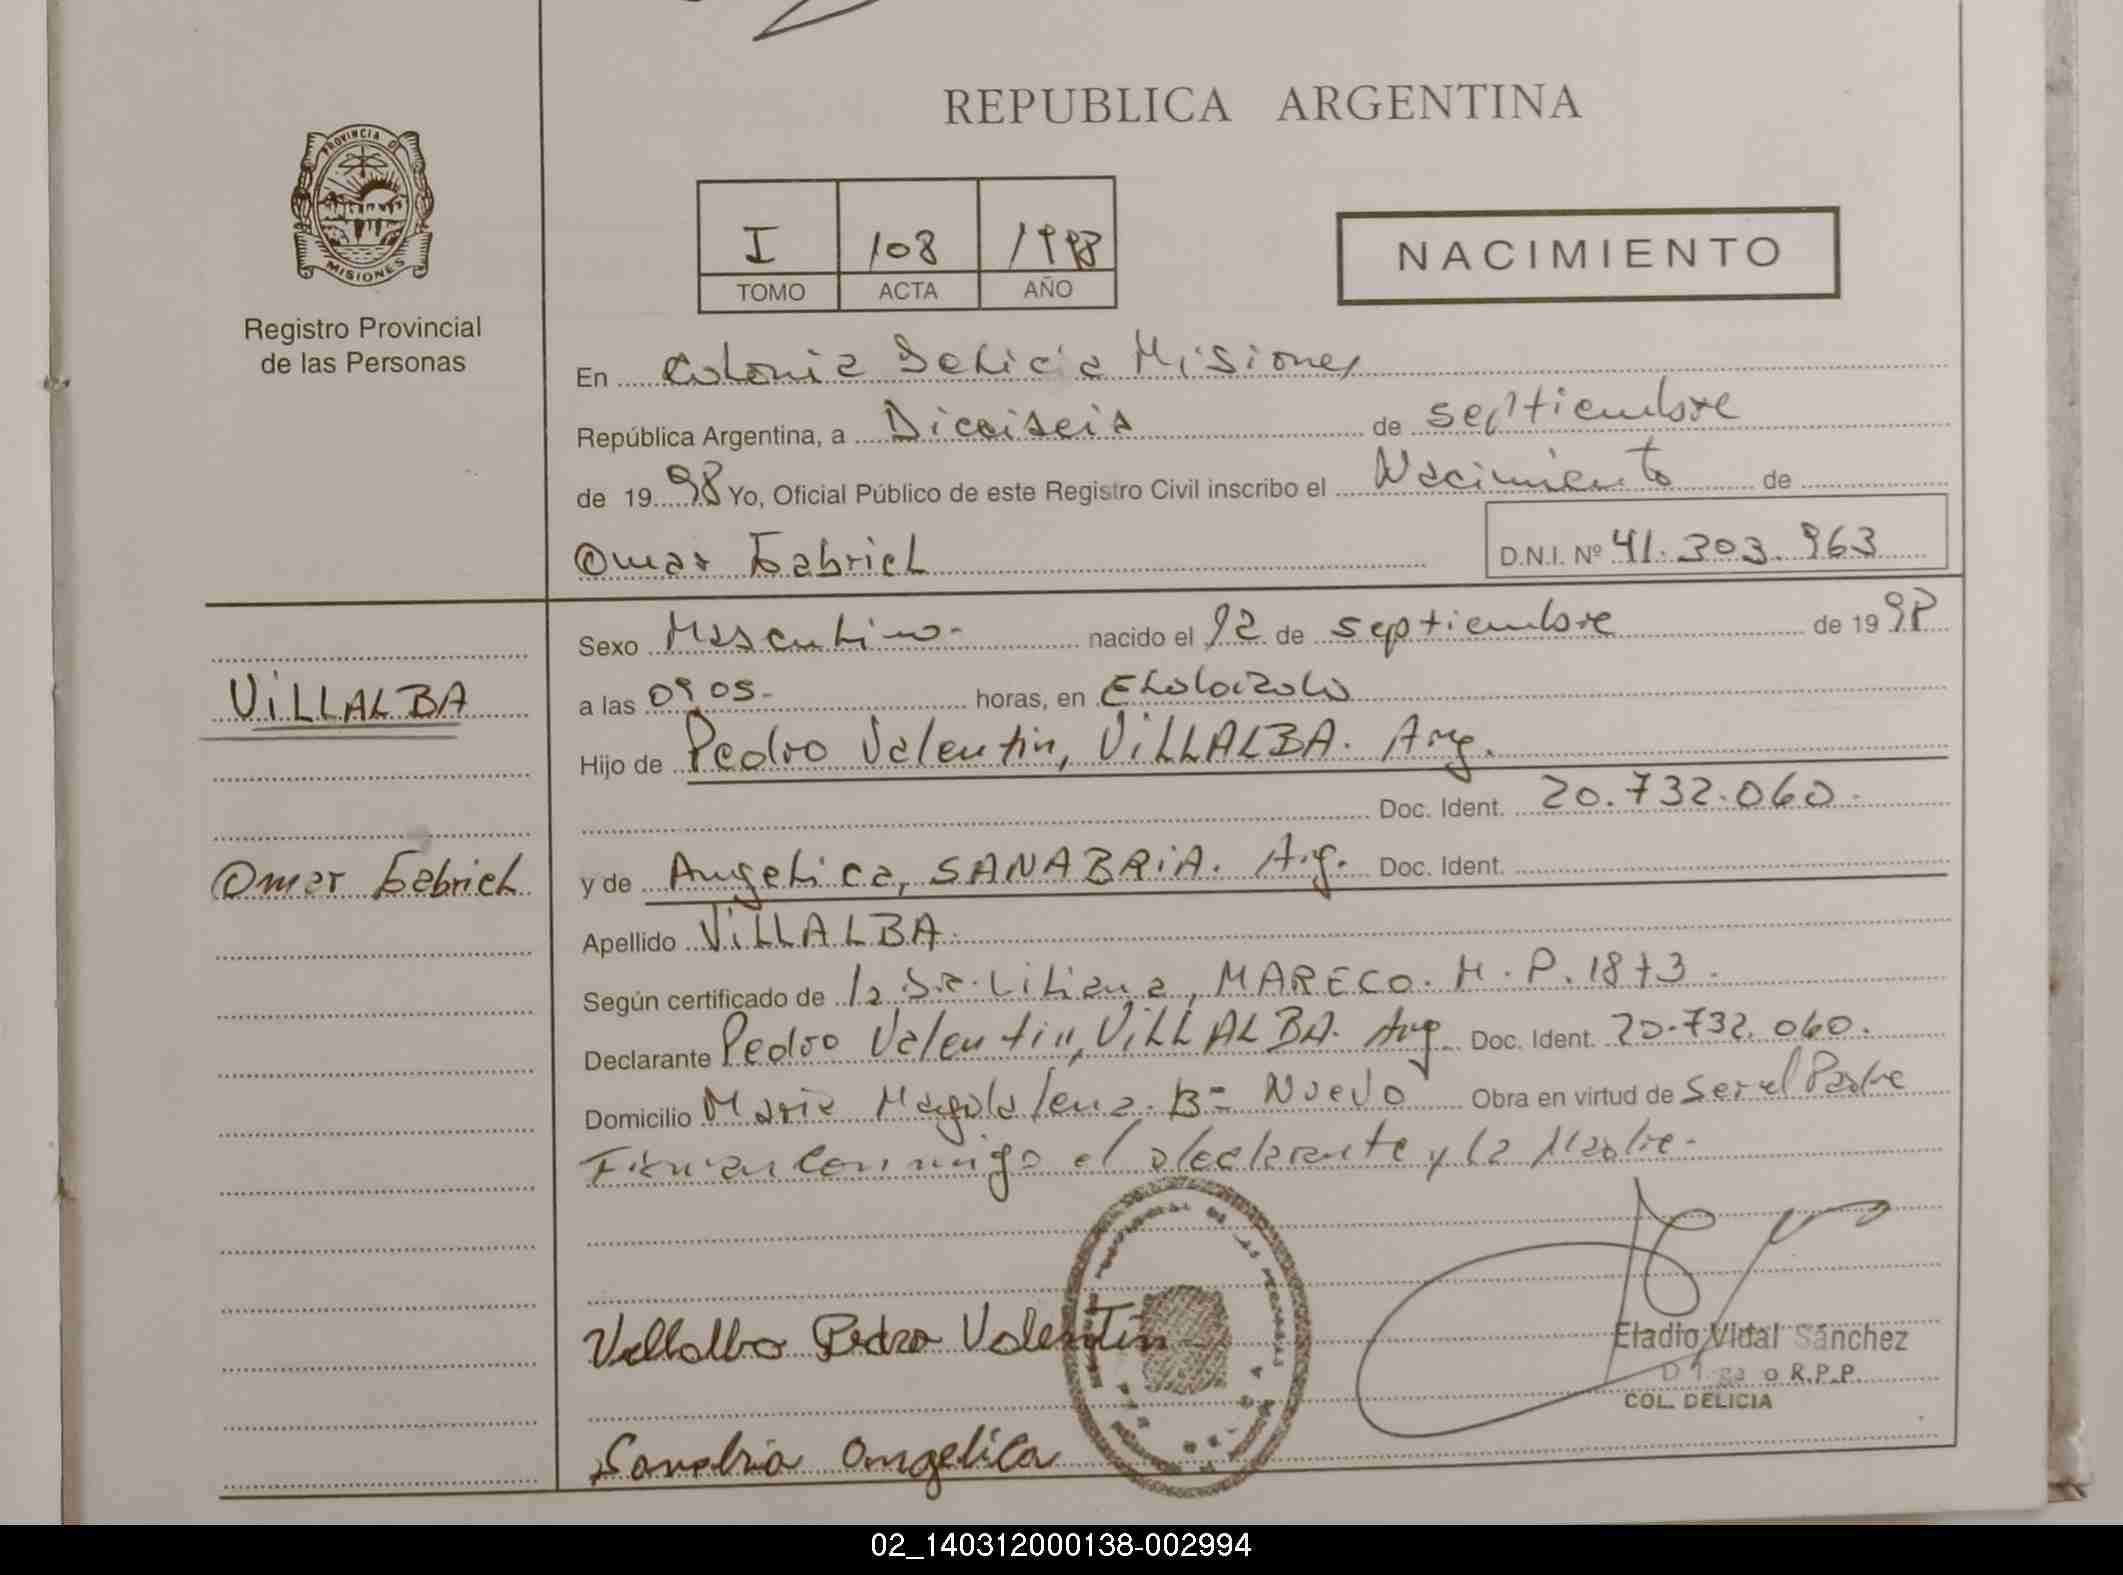 REPUBLICA ARGENTINA
PROVINCIA DE
MISIONES
Registro Provincial
de las Personas
I 108 1998
TOMO ACTA AÑO
NACIMIENTO
En Colonia Delicia Misiones
República Argentina, a Dieciseis de septiembre
de 1998 Yo, Oficial Público de este Registro Civil inscribo el Nacimiento de
Omar Gabriel D.N.I. Nº 41.303.963
VILLALBA
Omar Gabriel
Sexo Masculino- nacido el 12 de septiembre de 1998
a las 09 05- horas, en Eldorado
Hijo de Pedro Valentin, VILLALBA. Arg.
Doc. Ident. 20.732.060.
y de Angelica, SANABRIA. Arg. Doc. Ident.
Apellido VILLALBA.
Según certificado de la Dra. Liliana, MARECO. M.P. 1873.
Declarante Pedro Valentin, VILLALBA. Arg. Doc. Ident. 20.732.060.
Domicilio Maria Magdalena. Bº Nuevo Obra en virtud de ser el Padre
Firman conmigo el declarante y la Madre.
Villalba Pedro Valentin
Sanabria Angelica
Eladio Vidal Sánchez
R.P.P.
COL. DELICIA
02_140312000138-002994